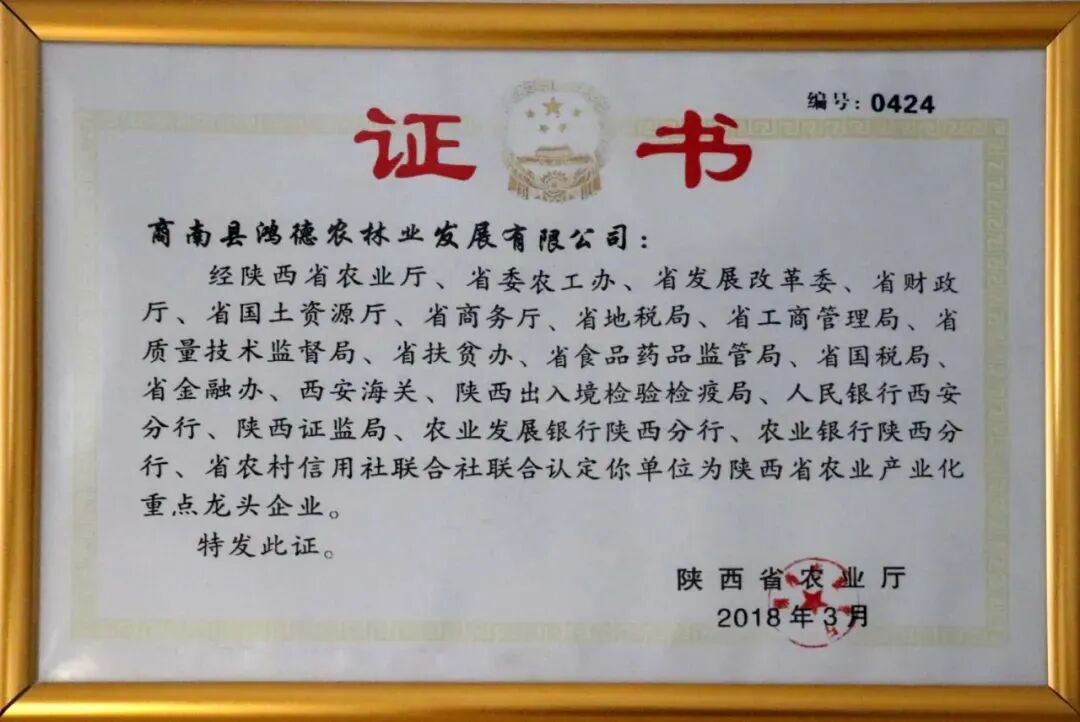 编号：0424
证书
商南县鸿德农林业发展有限公司：
经陕西省农业厅、省委农工办、省发展改革委、省财政
厅、省国土资源厅、省商务厅、省地税局、省工商管理局、省
质量技术监督局、省扶贫办、省食品药品监管局、省国税局、
省金融办、西安海关、陕西出入境检验检疫局、人民银行西安
分行、陕西证监局、农业发展银行陕西分行、农业银行陕西分
行、省农村信用社联合社联合认定你单位为陕西省农业产业化
重点龙头企业。
特发此证。
陕西省农业厅
2018年3月